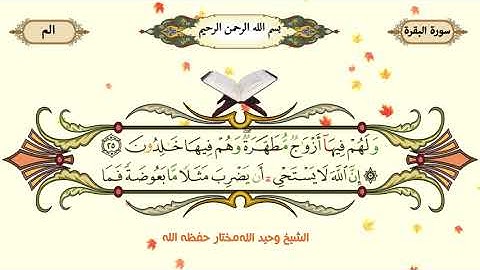 سورة البقرة
بسم الله الرحمن الرحيم
الم
وَلَهُمْ فِيهَآ أَزْوَٰجٌ مُّطَهَّرَةٌ وَهُمْ فِيهَا خَـٰلِدُونَ ٢٥
إِنَّ ٱللَّهَ لَا يَسْتَحْىِۦٓ أَن يَضْرِبَ مَثَلًا مَّا بَعُوضَةً فَمَا
الشيخ وحيد الله مختار حفظه الله